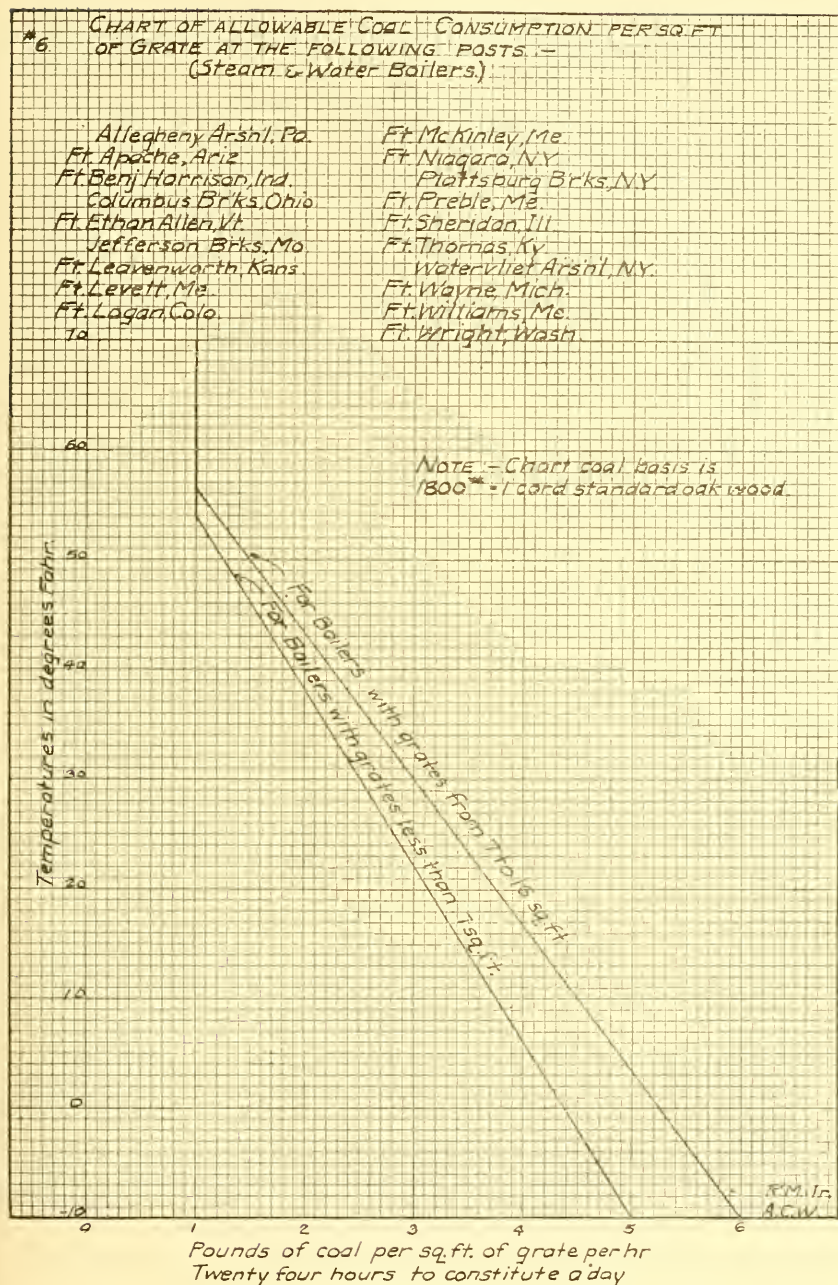 #6. CHART OF ALLOWABLE COAL CONSUMPTION PER SQ FT
OF GRATE AT THE FOLLOWING POSTS :-
(Steam & Water Boilers)
Allegheny Arsh'l, Pa.
Ft. Apache, Ariz
Ft. Benj Harrison, Ind.
Columbus Br'ks, Ohio
Ft. Ethan Allen, Vt.
Jefferson Brks, Mo
Ft. Leavenworth, Kans
Ft. Levett, Me
Ft. Logan, Colo.
Ft. McKinley, Me
Ft. Niagara, N.Y.
Plattsburg Br'ks, N.Y.
Ft. Preble, Me.
Ft. Sheridan, Ill
Ft. Thomas, Ky
Watervliet Arsh'l, N.Y.
Ft. Wayne, Mich.
Ft. Williams, Me.
Ft. Wright, Wash.
NOTE :- Chart coal basis is
1800# = 1 cord standard oak wood.
70
60
50
40
30
20
10
0
-10
Temperatures in degrees Fahr.
For Boilers with grates from 7 to 16 sq. ft
For Boilers with grates less than 7 sq. ft.
0 1 2 3 4 5 6
R.M. Jr.
A.C.W.
Pounds of coal per sq. ft. of grate per hr
Twenty four hours to constitute a day